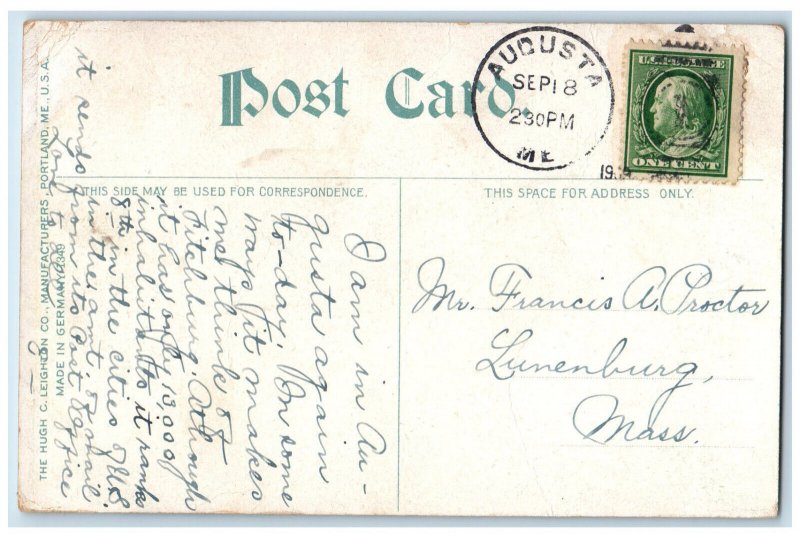 Post Card.
AUGUSTA
SEP 18
230PM
ME
U.S. POSTAGE
ONE CENT
THIS SIDE MAY BE USED FOR CORRESPONDENCE.
THIS SPACE FOR ADDRESS ONLY.
THE HUGH C. LEIGHTON CO., MANUFACTURERS, PORTLAND, ME., U.S.A.
MADE IN GERMANY
I am in Au-
gusta again
to-day. In some
ways it makes
me think of
Fitchburg. Although
it has only 13,000
inhabitants it ranks
8th in the cities of U.S.
in the amt. of mail
it sends from its Post Office
Mr. Francis A. Proctor
Lunenburg,
Mass.